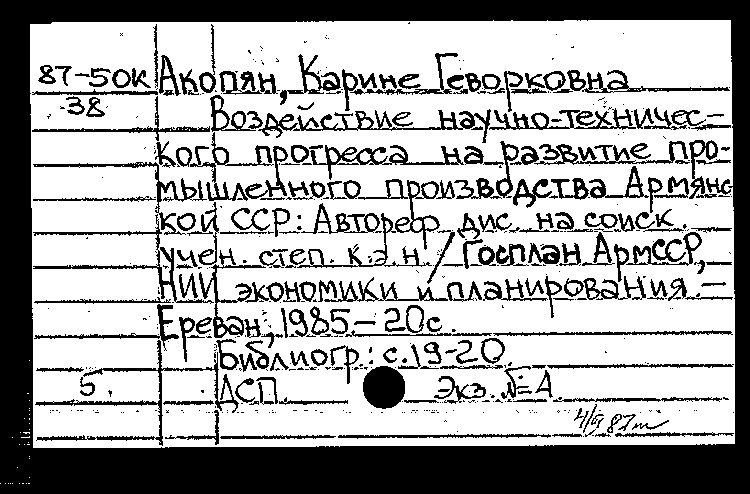 87-50К Акопян, Карине Геворковна
38 Воздействие научно-техничес-
кого прогресса на развитие про-
мышленного производства Армянс
кой ССР: Автореф. дис. на соиск.
учен. степ. к.э.н. / Госплан АрмССР,
НИИ экономики и планирования. –
Ереван, 1985 – 20с.
Библиогр.: с.19-20.
5. ДСП. Экз. №А
4/9 87